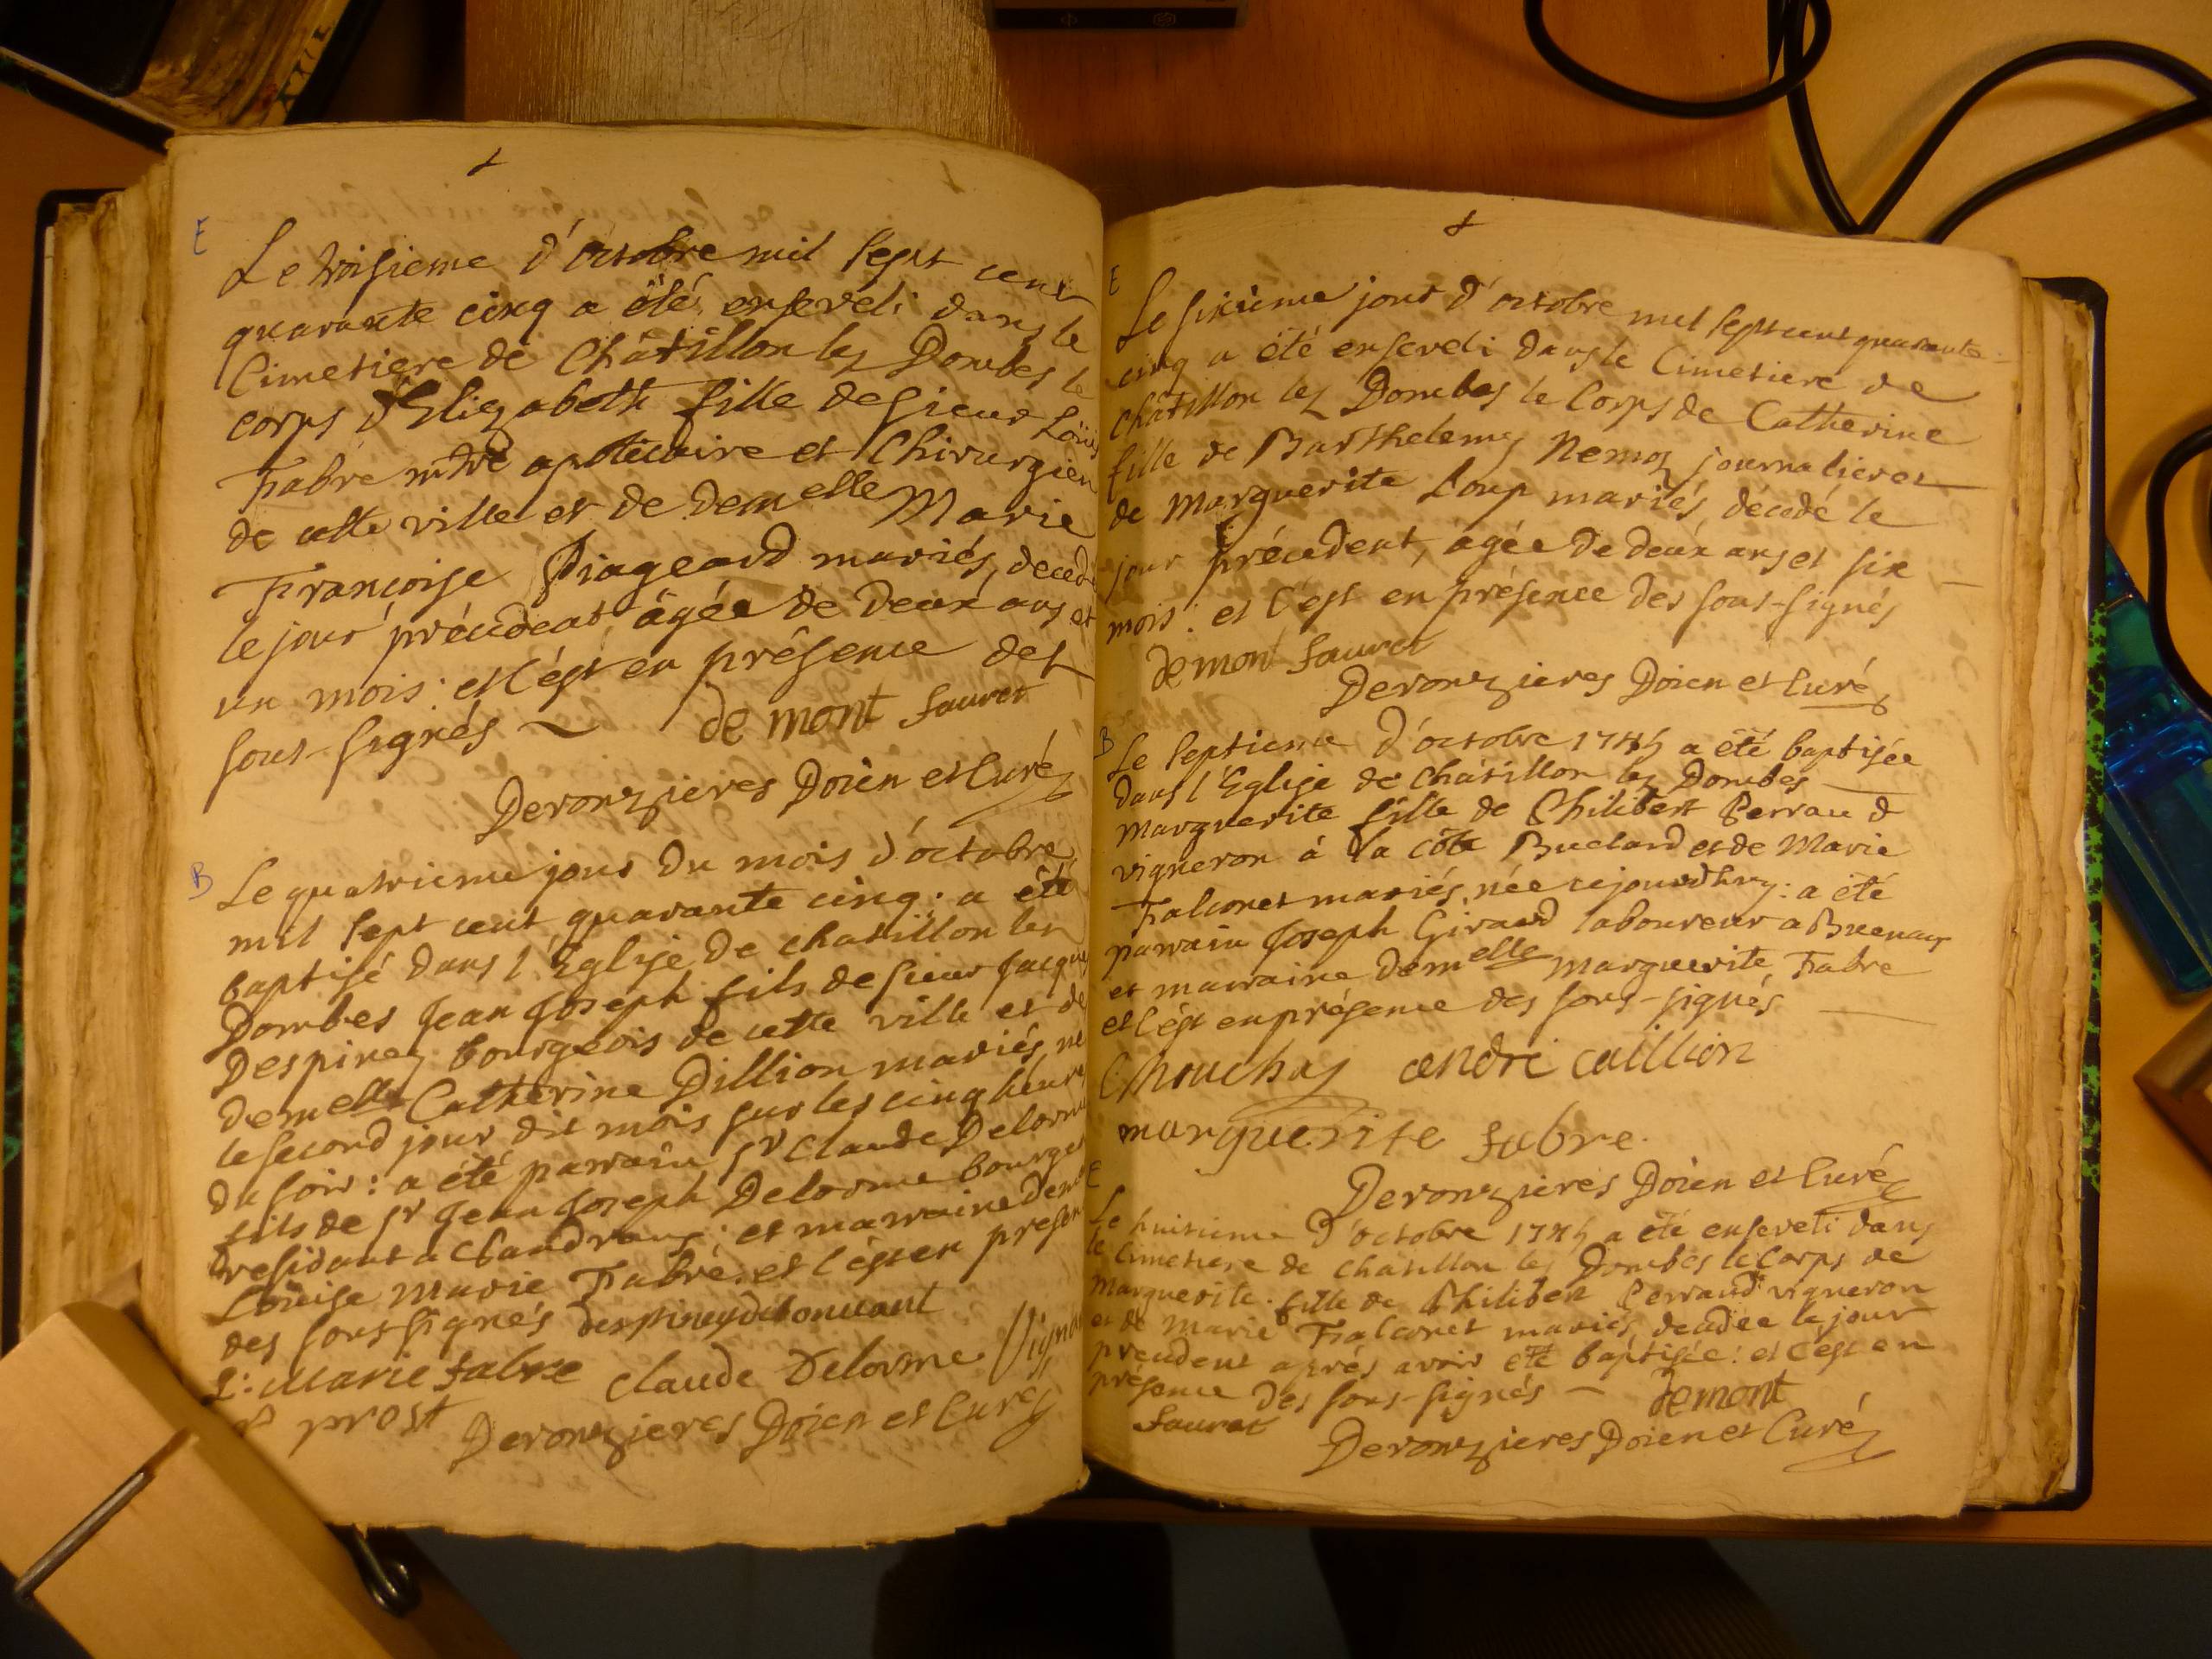 E
Le troisieme d'octobre mil sept cent
quarante cinq a été enseveli dans le
Cimetiere de Châtillon lez Dombes le
corps d'Elizabeth fille de sieur Loüis
Fabre mtre apoticaire et Chirurgien
de cette ville et de demelle Marie
Françoise Piageard mariés, decedé
le jour précedent âgée de deux ans et
un mois: et c'est en présence des
sous-signés ~ de mont fauret
Deronzieres Doien et Curé
B
Le quatrieme jour du mois d'octobre
mil sept cent quarante cinq: a été
baptisé dans l'Eglise de chatillon les
Dombes Jean Joseph fils de sieur Jacques
Despiney bourgeois de cette ville et de
demelle Catherine Dillion mariés, né
le second jour dit mois sur les cinq heures
du soir: a été parrain sr Claude Delorme
fils de sr Jean Joseph Delorme bourgeois
residant a et marraine
Loüise Marie Fabre. et c'est en presen
des sous signés despiney
L: Marie fabre Claude Delorme
prost Deronzieres Doien et Curé
E
Le sixieme jour d'octobre mil sept cent quarante-
cinq a été enseveli dans le Cimetiere de
châtillon lez Dombes le Corps de Catherine
fille de Barthelemy Nemoz journalier et
de Marguerite Loup mariés, décedé le
jour précedent, agée de deux ans et six
mois: et c'est en présence des sous-signés
de mont fauret
Deronzieres Doien et Curé
B
Le septieme d'octobre 1745 a été baptisée
dans l'Eglise de Châtillon lez Dombes
Marguerite fille de Philibert Perraud
vigneron à la côte Buclard et de Marie
Falconet mariés, née cejourdhuy: a été
parrain Joseph Giraud laboureur a
et marraine demelle Marguerite Fabre
et c'est en présence des sous-signés
Chouchay andré caillion
marguerite fabre.
Deronzieres Doien et Curé
E
Le huitieme d'octobre 1745 a été enseveli dans
le Cimetiere de chatillon lez Dombes le Corps de
Marguerite fille de Philibert Perraud vigneron
et de Marie Falconet mariés, decedée le jour
precedent aprés avoir été baptisée: et c'est en
présence des sous-signés ~ demont
fauret
Deronzieres Doien et Curé